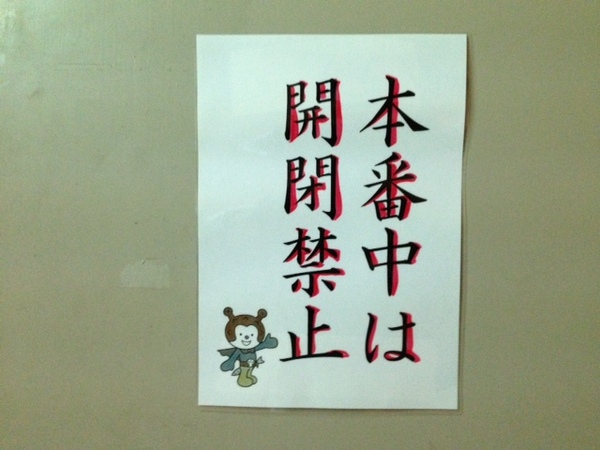 本番中は
開閉禁止